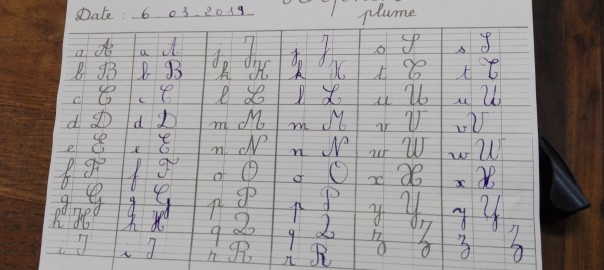 Date : 6 03 2019
plume
a A a A j J j J s S s S
b B b B k K k K t T t T
c C c C l L l L u U u U
d D d D m M m M v V v V
e E e E n N n N w W w W
f F f F o O o O x X x X
g G g G p P p P y Y y Y
h H h H q Q q Q z Z z Z
i I i I r R r R